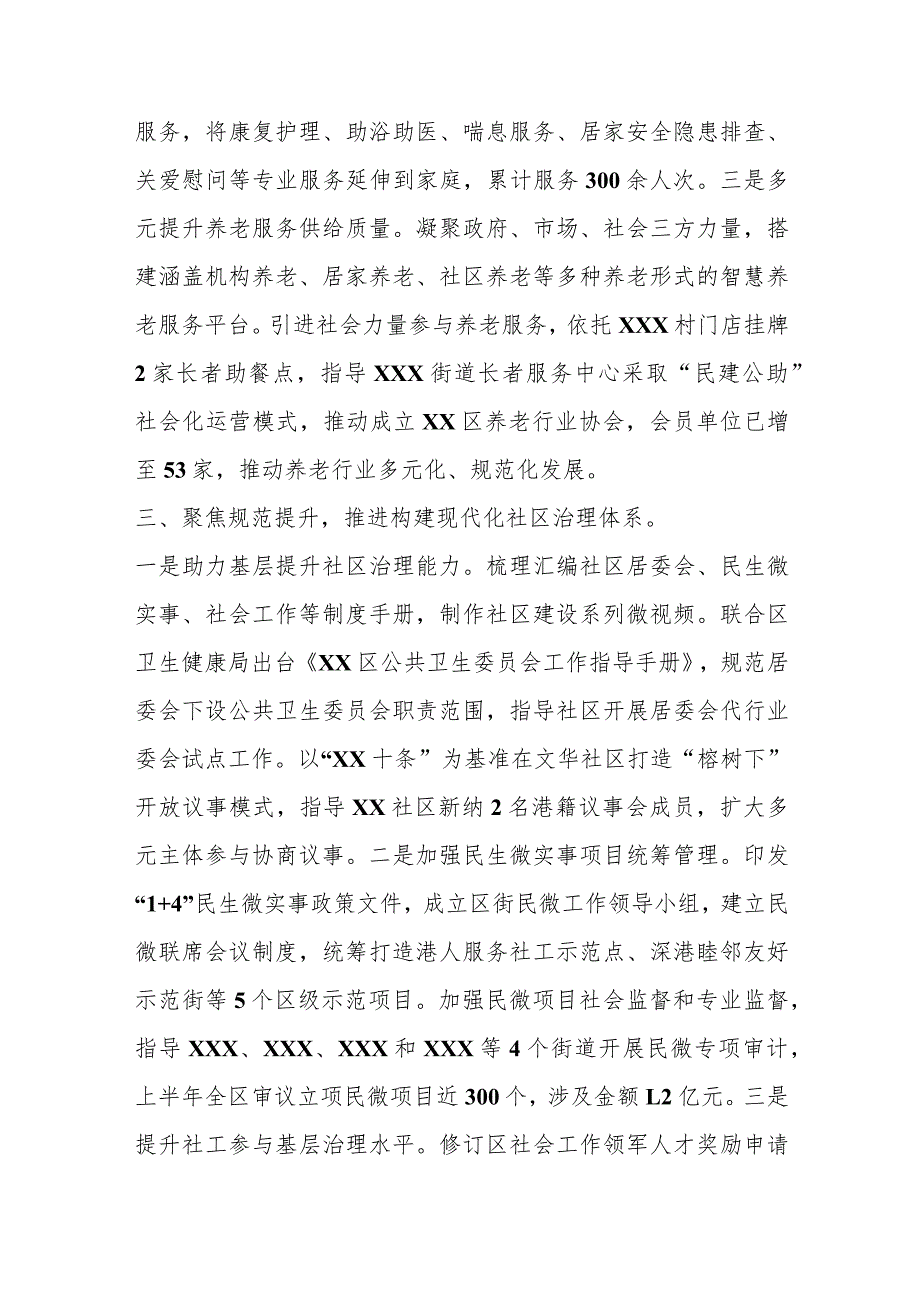 服务，将康复护理、助浴助医、喘息服务、居家安全隐患排查、
关爱慰问等专业服务延伸到家庭，累计服务 300 余人次。三是多
元提升养老服务供给质量。凝聚政府、市场、社会三方力量，搭
建涵盖机构养老、居家养老、社区养老等多种养老形式的智慧养
老服务平台。引进社会力量参与养老服务，依托 XXX 村门店挂牌
2 家长者助餐点，指导 XXX 街道长者服务中心采取“民建公助”
社会化运营模式，推动成立 XX 区养老行业协会，会员单位已增
至 53 家，推动养老行业多元化、规范化发展。
三、聚焦规范提升，推进构建现代化社区治理体系。
一是助力基层提升社区治理能力。梳理汇编社区居委会、民生微
实事、社会工作等制度手册，制作社区建设系列微视频。联合区
卫生健康局出台《XX 区公共卫生委员会工作指导手册》，规范居
委会下设公共卫生委员会职责范围，指导社区开展居委会代行业
委会试点工作。以“XX 十条”为基准在文华社区打造“榕树下”
开放议事模式，指导 XX 社区新纳 2 名港籍议事会成员，扩大多
元主体参与协商议事。二是加强民生微实事项目统筹管理。印发
“1+4”民生微实事政策文件，成立区街民微工作领导小组，建立民
微联席会议制度，统筹打造港人服务社工示范点、深港睦邻友好
示范街等 5 个区级示范项目。加强民微项目社会监督和专业监督，
指导 XXX、XXX、XXX 和 XXX 等 4 个街道开展民微专项审计，
上半年全区审议立项民微项目近 300 个，涉及金额 L2 亿元。三是
提升社工参与基层治理水平。修订区社会工作领军人才奖励申请